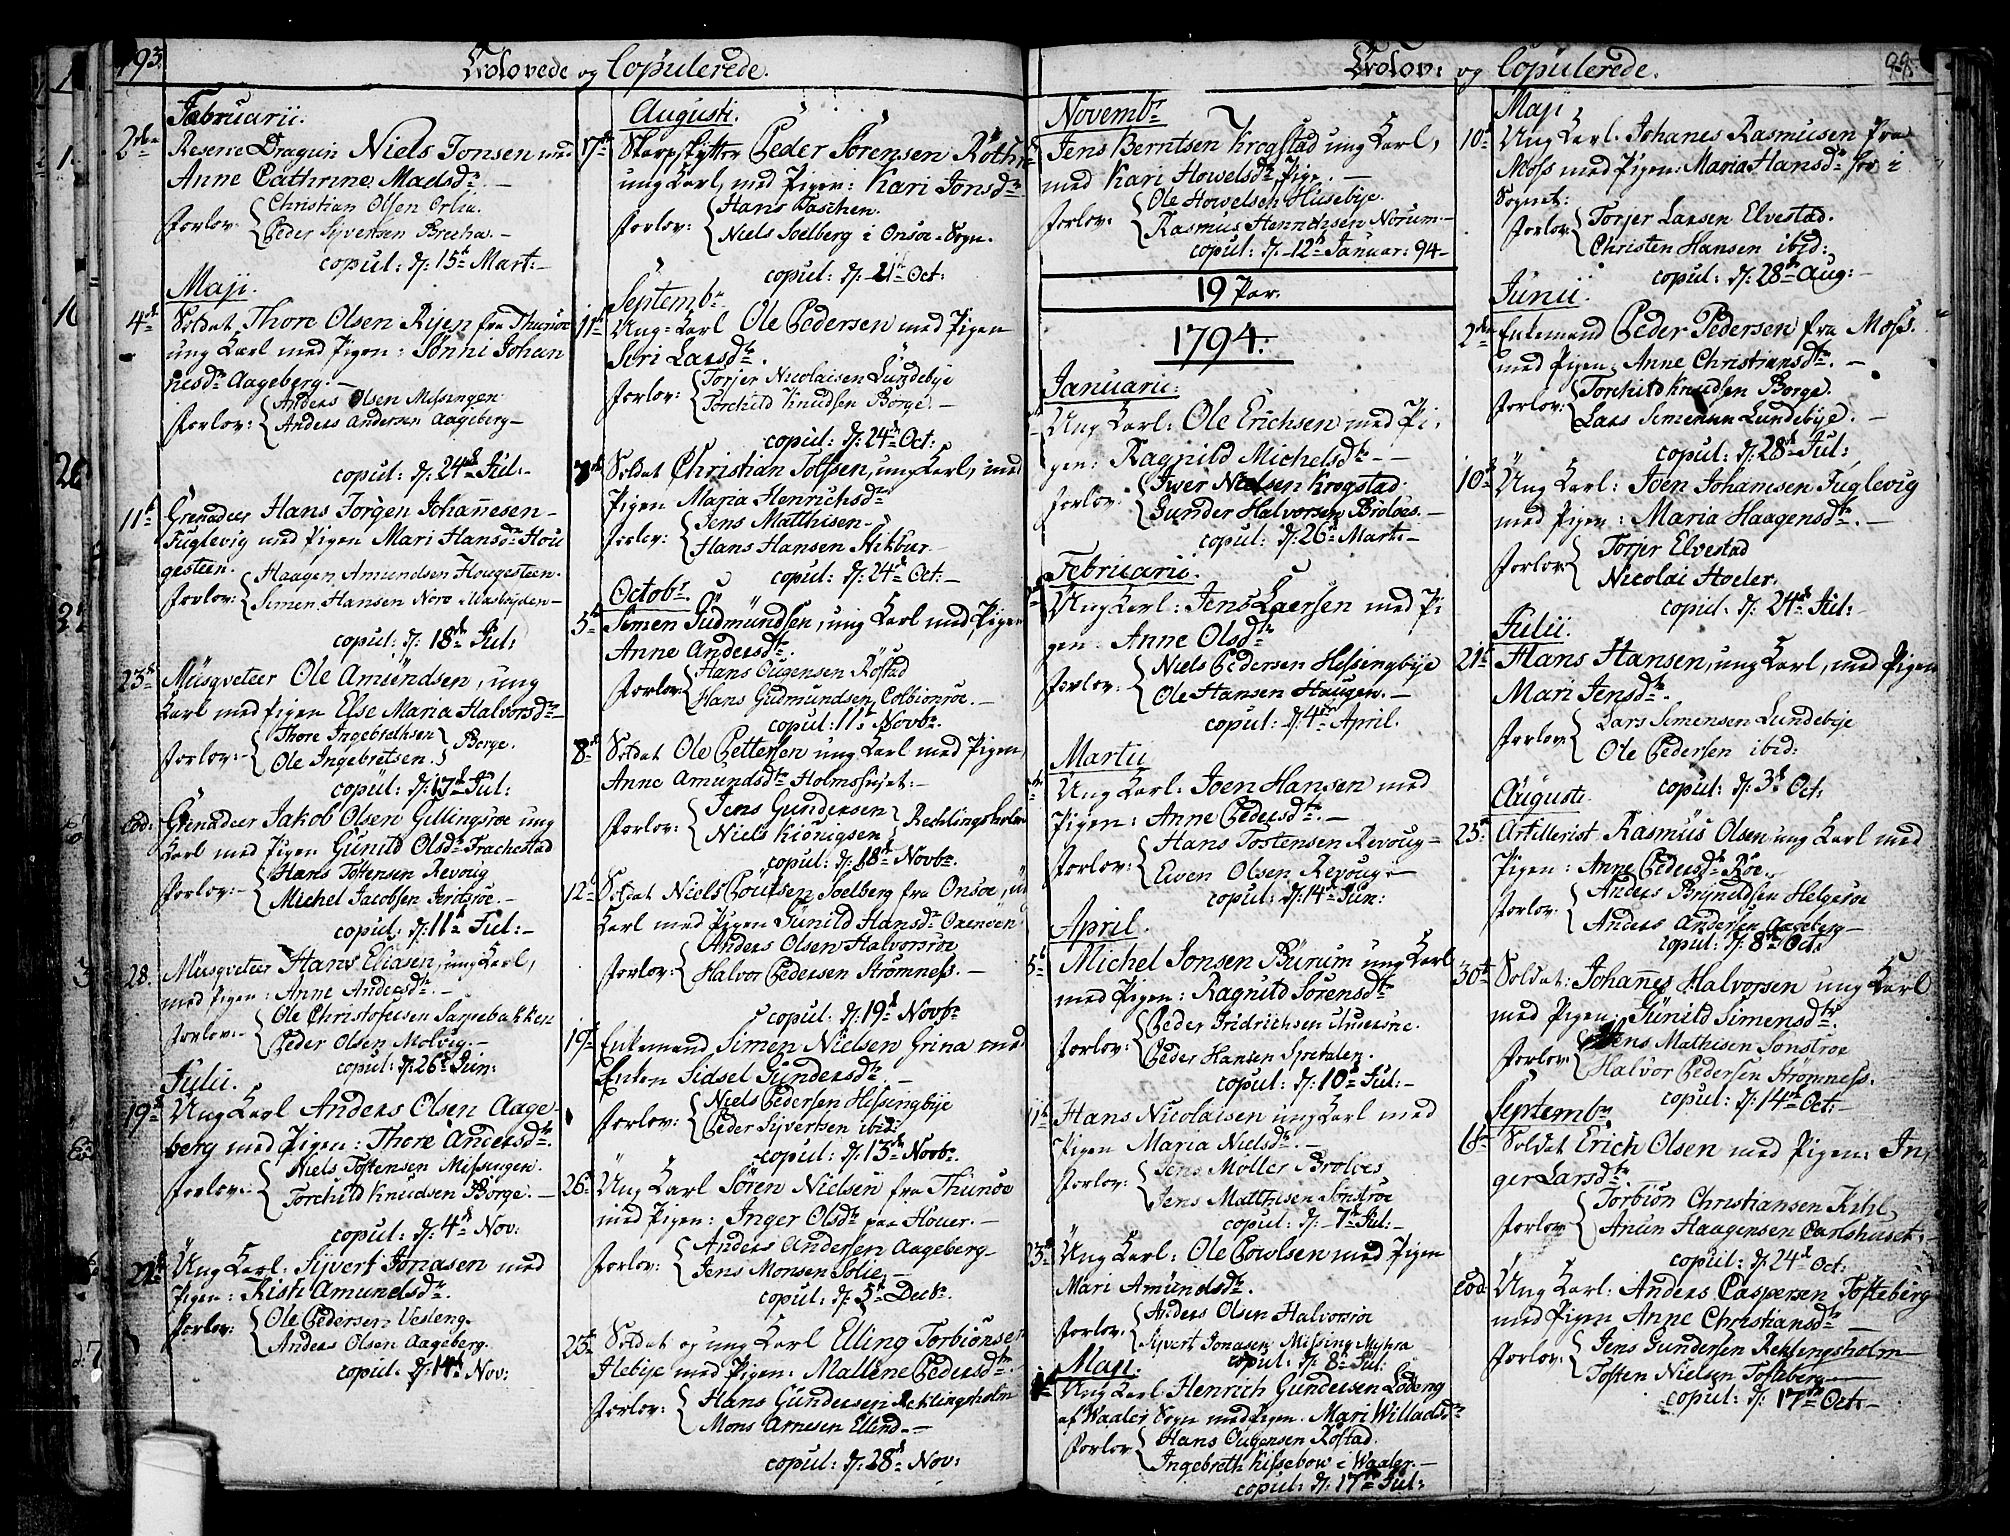 1793.
Trolovede og Copulerede.
Februarii.
2den Reserve Dragun Niels Jonsen med
Anne Cathrine Madsdr. —
Forlov: Christian Olsen Orha.
Peder Syvertsen Brecha. —
copul: d: 15de Mart: —
Maji.
4de Soldat Thore Olsen Rijen fra Thunøe
ung Karl med Pigen: Sønni Johan
nesdr Aageberg. —
Forlov: Anders Olsen Missingen
Anders Andersen Aageberg —
copul: d: 24de Jul: —
11te Grenadeer Hans Jørgen Johannesen —
Fuglevig med Pigen Mari Hansdr Hou
gesteen.
Forlov: Haagen Amundsen Hougesteen.
Simen Hansen Nore i Mastsyden —
copul: d: 18de Jul:
23de Musqveteer Ole Amundsen, ung
Karl med Pigen Else Maria Halvorsdr —
Forlov: Thore Ingebrethsen
Ole Ingebretsen. Borge.
copul: d: 17de Jul:
Eod: Grenadeer Jakob Olsen Gillingsrøe ung
Karl med Pigen Gunild Olsdr Frachestad
Forlov: Hans Tostensen Revoug
Michel Jacobsen —
copul: d: 11te Jul: —
28. Musqveteer Hans Eliasen, ung Karl,
med Pigen: Anne Andersdr. —
Forlov: Ole Christofersen Sarpebakken
Peder Olsen Molvig. —
copul: d: 26de Jun:
Julii.
19de Ung Karl Anders Olsen Aage-
berg med Pigen: Thore Andersdr.
Forlov: Niels Tostensen Missingen.
Torchild Knudsen Borge. —
copul: d: 4de Nov:
22de Ung Karl: Sijvert Jonasen med
Pigen: Kisti Amundsdr.
Forlov: Ole Pedersen Vesteng.
Anders Olsen Aageberg.
copul: d: 14de Nov:
Augusti.
17de Skarpskytter Peder Sørensen Røthn
ung Karl, med Pigen: Kari Jonsdr
Forlov: Hans Taschen.
Niels Soelberg i Onsøe-Sogn.
copul: d: 21de Oct:
Septembr.
11te Ung-Karl Ole Pedersen med Pigen
Siri Larsdr.
Forlov: Torjer Nicolaisen Lundebye
Torchild Knudsen Borge. —
copul: d: 24de Oct:
Soldat Christian Tolfsen, ung Karl, med
Pigen Maria Henrichsdr
Forlov: Jens Matthisen —
Hans Hansen —
copul: d: 24de Oct: —
Octobr.
5te Simen Gudmundsen, ung Karl med Pigen
Anne Andersdr.
Forlov: Hans Ougensen Rostad
Hans Gudmundsen Colbionrøe. —
copul: 11te Novbr.
8de Soldat Ole Pettersen ung Karl med Pigen
Anne Amundsdr Holmshuset: —
Forlov: Jens Gundersen
Niels Kiønigsen Rechlingsholm
copul: d: 18de Novbr.
12te Soldat Niels Povelsen Soelberg fra Onsøe, ung
Karl med Pigen Gunild Hansdr Oxeneen
Forlov: Anders Olsen Halvorsrøe
Halvor Pedersen Strømness. —
copul: d: 19de Novbr
19de Enkemand Simen Nielsen Grina med
Enken Sidsel Gundersdr. —
Forlov: Niels Pedersen Hissingbye
Peder Syvertsen ibid:
copul: d: 13de Novbr.
26de Ung Karl Søren Nielsen fra Thunøe
med Pigen: Inger Olsdr paa Houer. —
Forlov: Anders Andersen Aageberg —
Jens Monsen Solie. —
copul: d: 5te Decbr.
23de Soldat og ung Karl Elling Torbiønsen
Alebye med Pigen: Mallene Pedersdr. —
Forlov: Hans Gundersen Reklingsholm
Mons Arnesen Ellind —
copul: d: 28de Nov:
Trolov: og Copulerede.
99.
Novembr
Jens Berntsen Krogstad ung Karl,
med Kari Howelsdr, Pige. —
Forlov: Ole Howelsen Husebye.
Rasmus Henrichsen Norum —
copul: d: 12te Januar: 94 —
19 Par.
1794:
Januarii:
Ung Karl: Ole Erichsen med Pi-
gen: Ragnild Michelsdr —
Forlov: Iwer Nielsen Krogstad.
Gunder Halvorsen Broløes. —
copul: d: 26de Mart: —
Februarii.
Ung Karl: Jens Laersen med Pi
gen: Anne Olsdr
Forlov: Niels Pedersen Hissingbye
Ole Hansen Haugen. —
copul: d: 4de April.
Martii
Ung Karl: Joen Hansen med
Pigen: Anne Pedersdr. —
Forlov: Hans Tostensen Revoug —
Even Olsen Revoug —
copul: d: 14de Jun:
April.
5te Michel Jonsen Burum ung Karl
med Pigen: Ragnild Sørensdr
Forlov: Peder Fridrichsen
Peder Hansen Spetalen.
copul: d: 10de Jul: —
11te Hans Nicolaisen ung Karl med
Pigen Maria Nielsdr. —
Forlov: Jens Moller Broløes
Jens Matthisen Sonstrøe
copul: d: 7de Jul: —
23de Ung Karl: Ole Powlsen med Pigen
Mari Amundsdr.
Forlov: Anders Olsen Halvorsrøe
Sijvert Jonasen Missing Myhra
copul: d: 8de Jul:
Maji.
Ung Karl Henrich Gundersen Lodeng
af Waaler Sogn med Pigen: Mari Willadsdr
Forlov: Hans Ougensen Rostad.
Ingebreth Kissebow i Waaler. —
copul: d: 17de Jul:
Maji
10de Ung Karl: Johanes Rasmusen fra
Moss med Pigen: Maria Hansdr her i
Sognet:
Forlov: Torjer Larsen Elvestad.
Christen Hansen ibid:
copul: d: 28de Aug: —
Junii.
2den Enkemand Peder Pedersen fra Moss.
med Pigen: Anne Christiansdr. —
Forlov: Torchild Knudsen Borge.
Lars Simensen Lundebye. —
copul: d: 28de Jul:
10de Ung Karl: Joen Johannsen Fuglevig
med Pigen: Maria Haagensdr. —
Forlov: Torjer Elvestad
Nicolai Hoeler.
copul: d: 24de Jul: —
Julii.
21de Hans Hansen, ung Karl, med Pigen
Mari Jensdr.
Forlov: Lars Simensen Lundebye
Ole Pedersen ibid:
copul: d: 3de Oct:
Augusti.
25de Artillerist Rasmus Olsen ung Karl med
Pigen: Anne Pedersdr Røe.
Forlov: Anders Brynildsen Helgerøe
Anders Andersen Aageberg —
copul: d: 8de Oct:
30te Soldat: Johannes Halvorsen ung Karl
med Pigen: Gunild Simensdr.
Forlov: Jens Mathisen Sonstrøe
Halvor Pedersen Strømness.
copul: d: 14de Oct: —
Septembr.
16de Soldat Erich Olsen med Pigen: In-
ger Larsdr.
Forlov: Torbiøn Christiansen Kihl,
Anun Haagensen Carlshuset. —
copul: d: 24de Oct:
Eod: Ung Karl: Anders Caspersen Tosteberg
med Pigen Anne Christiansdr —
Forlov: Jens Gundersen Reklingsholm —
Tosten Nielsen Tosteberg —
copul: d: 17de Oct: —